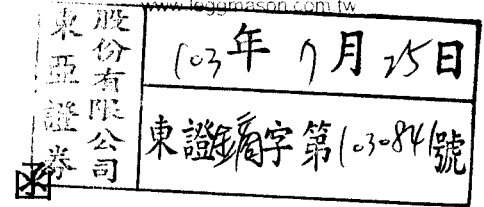 www.leggmason.com.tw
東亞證券
股份有限公司
103年7月25日
東證錡字第1030841號